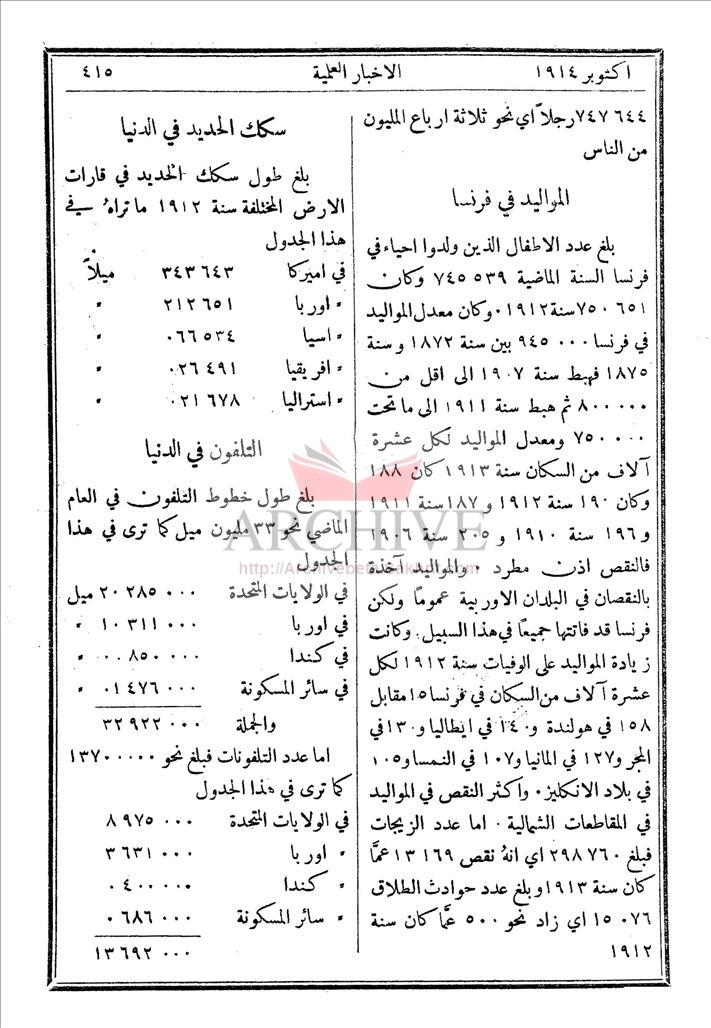 اكتوبر ١٩١٤
الاخبار العلمية
٤١٥
٧٤٧٦٤٤ رجلاً اي نحو ثلاثة ارباع المليون
من الناس
المواليد في فرنسا
بلغ عدد الاطفال الذين ولدوا احياء في
فرنسا السنة الماضية ٧٤٥٥٣٩ وكان
٧٥٠٦٥١ سنة ١٩١٢ ٠ وكان معدل المواليد
في فرنسا ٩٤٥٠٠٠ بين سنة ١٨٧٢ وسنة
١٨٧٥ فهبط سنة ١٩٠٧ الى اقل من
٨٠٠٠٠٠ ثم هبط سنة ١٩١١ الى ما تحت
٧٥٠٠٠٠ ومعدل المواليد لكل عشرة
آلاف من السكان سنة ١٩١٣ كان ١٨٨
وكان ١٩٠ سنة ١٩١٢ و١٨٧ سنة ١٩١١
و١٩٦ سنة ١٩١٠ و٢٠٥ سنة ١٩٠٦
فالنقص اذن مطرد ٠ والمواليد آخذة
بالنقصان في البلدان الاوربية عموماً ولكن
فرنسا قد فاتتها جميعاً في هذا السبيل. وكانت
زيادة المواليد على الوفيات سنة ١٩١٢ لكل
عشرة آلاف من السكان في فرنسا ١٥ مقابل
١٥٨ في هولندة و١٤٠ في ايطاليا و١٣٠ في
المجر و١٢٧ في المانيا و١٠٧ في النمسا و١٠٥
في بلاد الانكليز ٠ واكثر النقص في المواليد
في المقاطعات الشمالية ٠ اما عدد الزيجات
فبلغ ٢٩٨٧٦٠ اي انهُ نقص ١٣١٦٩ عمَّا
كان سنة ١٩١٣ وبلغ عدد حوادث الطلاق
١٥٠٧٦ اي زاد نحو ٥٠٠ عمَّا كان سنة
١٩١٢
سكك الحديد في الدنيا
بلغ طول سكك الحديد في قارات
الارض المختلفة سنة ١٩١٢ ما تراهُ في
هذا الجدول
في اميركا ٣٤٣٦٤٣ ميلاً
" اوربا ٢١٢٦٥١ "
" اسيا ٠٦٦٥٣٤ "
" افريقيا ٠٢٦٤٩١ "
" استراليا ٠٢١٦٧٨ "
التلفون في الدنيا
بلغ طول خطوط التلفون في العام
الماضي نحو ٣٣ مليون ميل كما ترى في هذا
الجدول
في الولايات المتحدة ٢٠٢٨٥٠٠٠ ميل
في اوربا ١٠٣١١٠٠٠ "
في كندا ٠٠٨٥٠٠٠٠ "
في سائر المسكونة ٠١٤٧٦٠٠٠
والجملة ٣٢٩٢٢٠٠٠
اما عدد التلفونات فبلغ نحو ١٣٧٠٠٠٠٠
كما ترى في هذا الجدول
في الولايات المتحدة ٨٩٧٥٠٠٠
" اوربا ٣٦٣١٠٠٠
" كندا ٠٤٠٠٠٠٠
" سائر المسكونة ٠٦٨٦٠٠٠
١٣٦٩٢٠٠٠
ARCHIVE